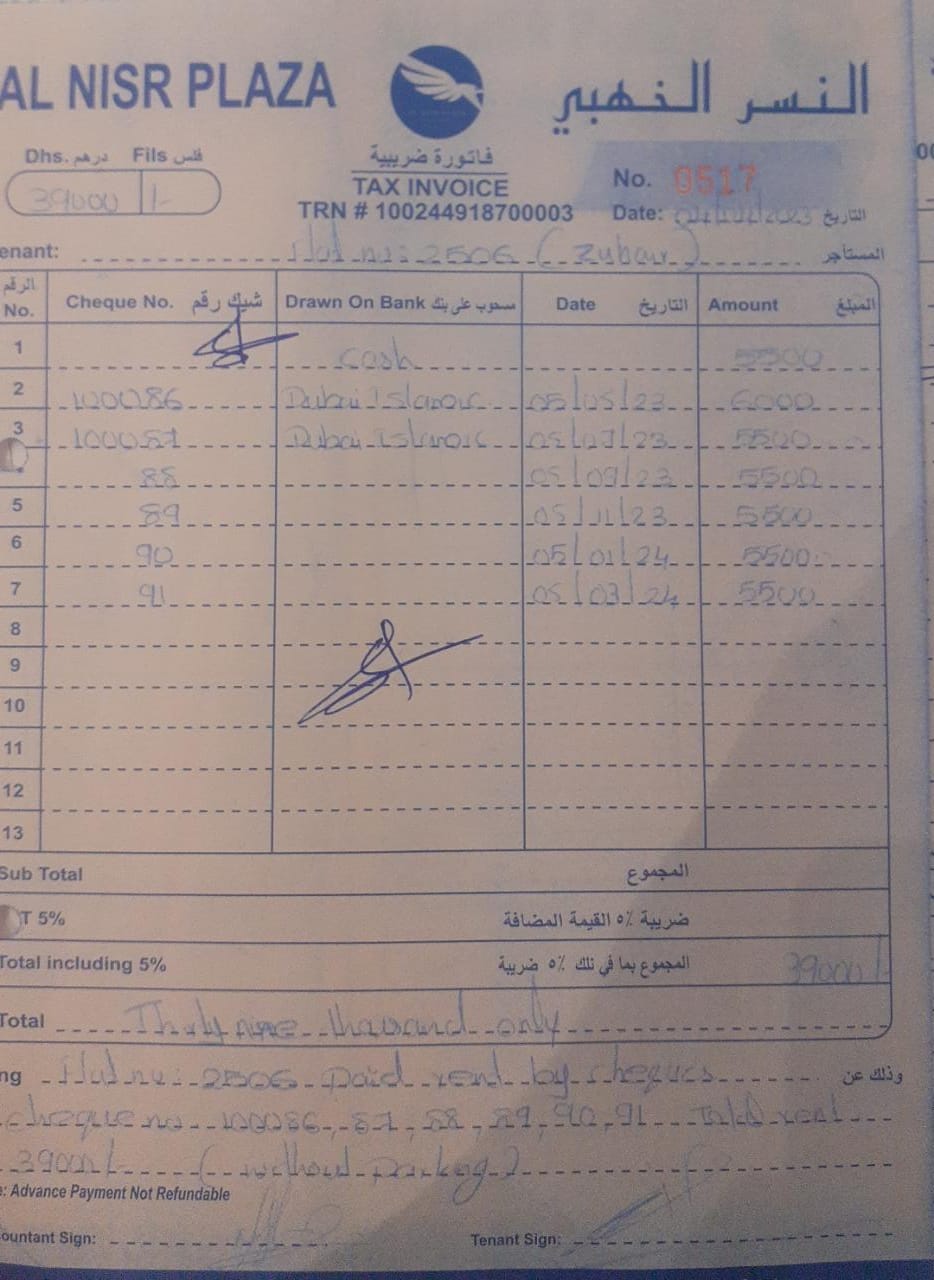 AL NISR PLAZA النسر الذهبي
Dhs. درهم Fils فلس
39000 /-
فاتورة ضريبية
TAX INVOICE
TRN # 100244918700003
No. 0517
Date: 2023 التاريخ
enant: Flat no: 2506 (Zubair) المستأجر
الرقم No. Cheque No. شيك رقم Drawn On Bank مسحوب على بنك Date التاريخ Amount المبلغ
1 Cash 5500
2 100086 Dubai Islamic 05/05/23 6000
3 100087 Dubai Islamic 05/07/23 5500
88 05/09/23 5500
5 89 05/11/23 5500
6 90 05/01/24 5500
7 91 05/03/24 5500
8
9
10
11
12
13
Sub Total المجموع
T 5% ضريبة ٥٪ القيمة المضافة
Total including 5% المجموع بما في تلك ٥٪ ضريبة 39000/-
Total Thirty nine thousand only
ng Flat no: 2506 paid rent by cheques وذلك عن
cheque no 100086, 87, 88, 89, 90, 91 Total rent
39000/- (without parking)
e: Advance Payment Not Refundable
ountant Sign: Tenant Sign: